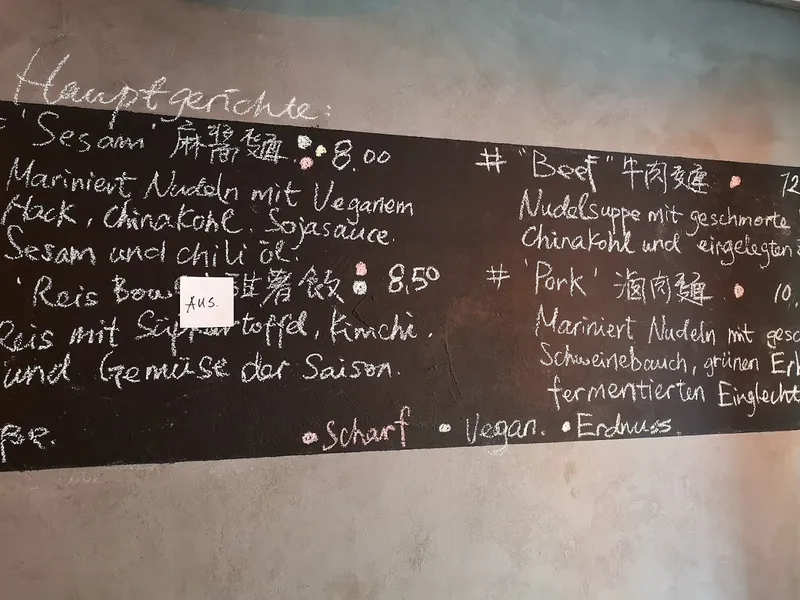 Hauptgerichte:
'Sesam' 麻醬麵 8.00
Mariniert Nudeln mit Veganem
Hack, Chinakohl. Sojasauce.
Sesam und chili öl.
'Reis Bow 薯飯 8,50
Aus.
Reis mit Süß rtoffel, Kimchi.
und Gemüse der Saison.
# "Beef" 牛肉麵
Nudelsuppe mit geschmorte
Chinakohl und eingelegten
# 'Pork' 滷肉麵 10,
Mariniert Nudeln mit gesc
Schweinebauch, grünen Erb
fermentierten Einglecht
pe.
Scharf Vegan. Erdnuss.